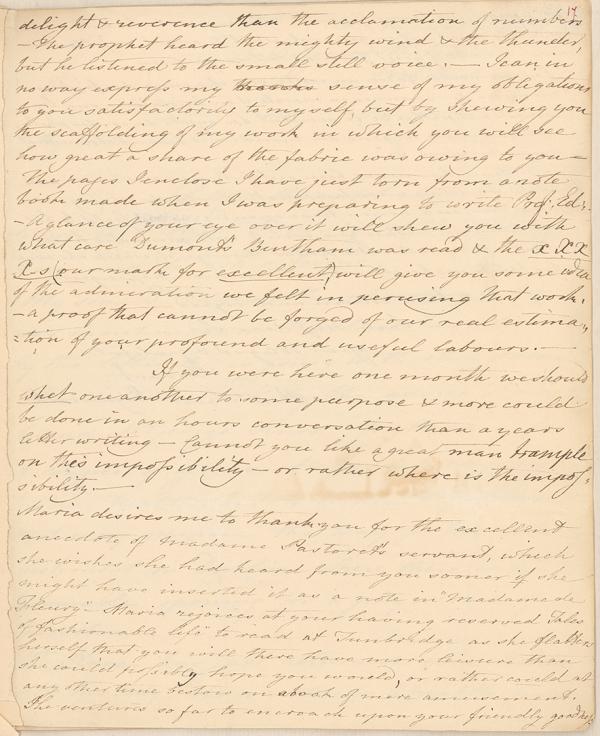 17
delight & reverence than the acclamation of numbers
– The prophet heard the mighty wind & the thunder,
but he listened to the small still voice. – I can in
no way express my thanks sense of my obligations
to you satisfactorily to myself, but by shewing you
the scaffolding of my work in which you will see
how great a share of the fabric was owing to you –
The pages I enclose I have just torn from a note
book made when I was preparing to write Prof: Ed:.
– A glance of your eye over it will shew you with
what care Dumont's Bentham was read & the x X X
X s (our mark for excellent) will give you some idea
of the admiration we felt in perusing that work.
– a proof that cannot be forged of our real estima-
-tion of your profound and useful labours. –
If you were here one month we should
whet one another to some purpose & more could
be done in an hours conversation than a years
letter writing – Cannot you like a great man trample
on this impossibility – or rather where is the impos-
sibility. –
Maria desires me to thank you for the excellent
anecdote of Madame Pastoret's servant, which
she wishes she had heard from you sooner if she
might have inserted it as a note in "Madame de
Fleury". Maria rejoices at your having reserved "Tales
of fashionable life" to read at Tunbridge as she flatters
herself that you will there have more leisure than
she could possibly hope you would, or rather could at
any other time bestow on a book of mere amusement.
She ventures so far to encroach upon your friendly goodness